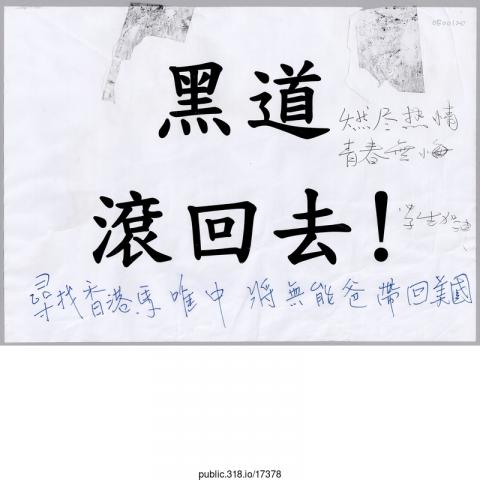 黑道
然尽热情
青春無悔
滾回去!
學生加油
尋找香港馬唯中 將無能爸帶回美國
public.318.io/17378